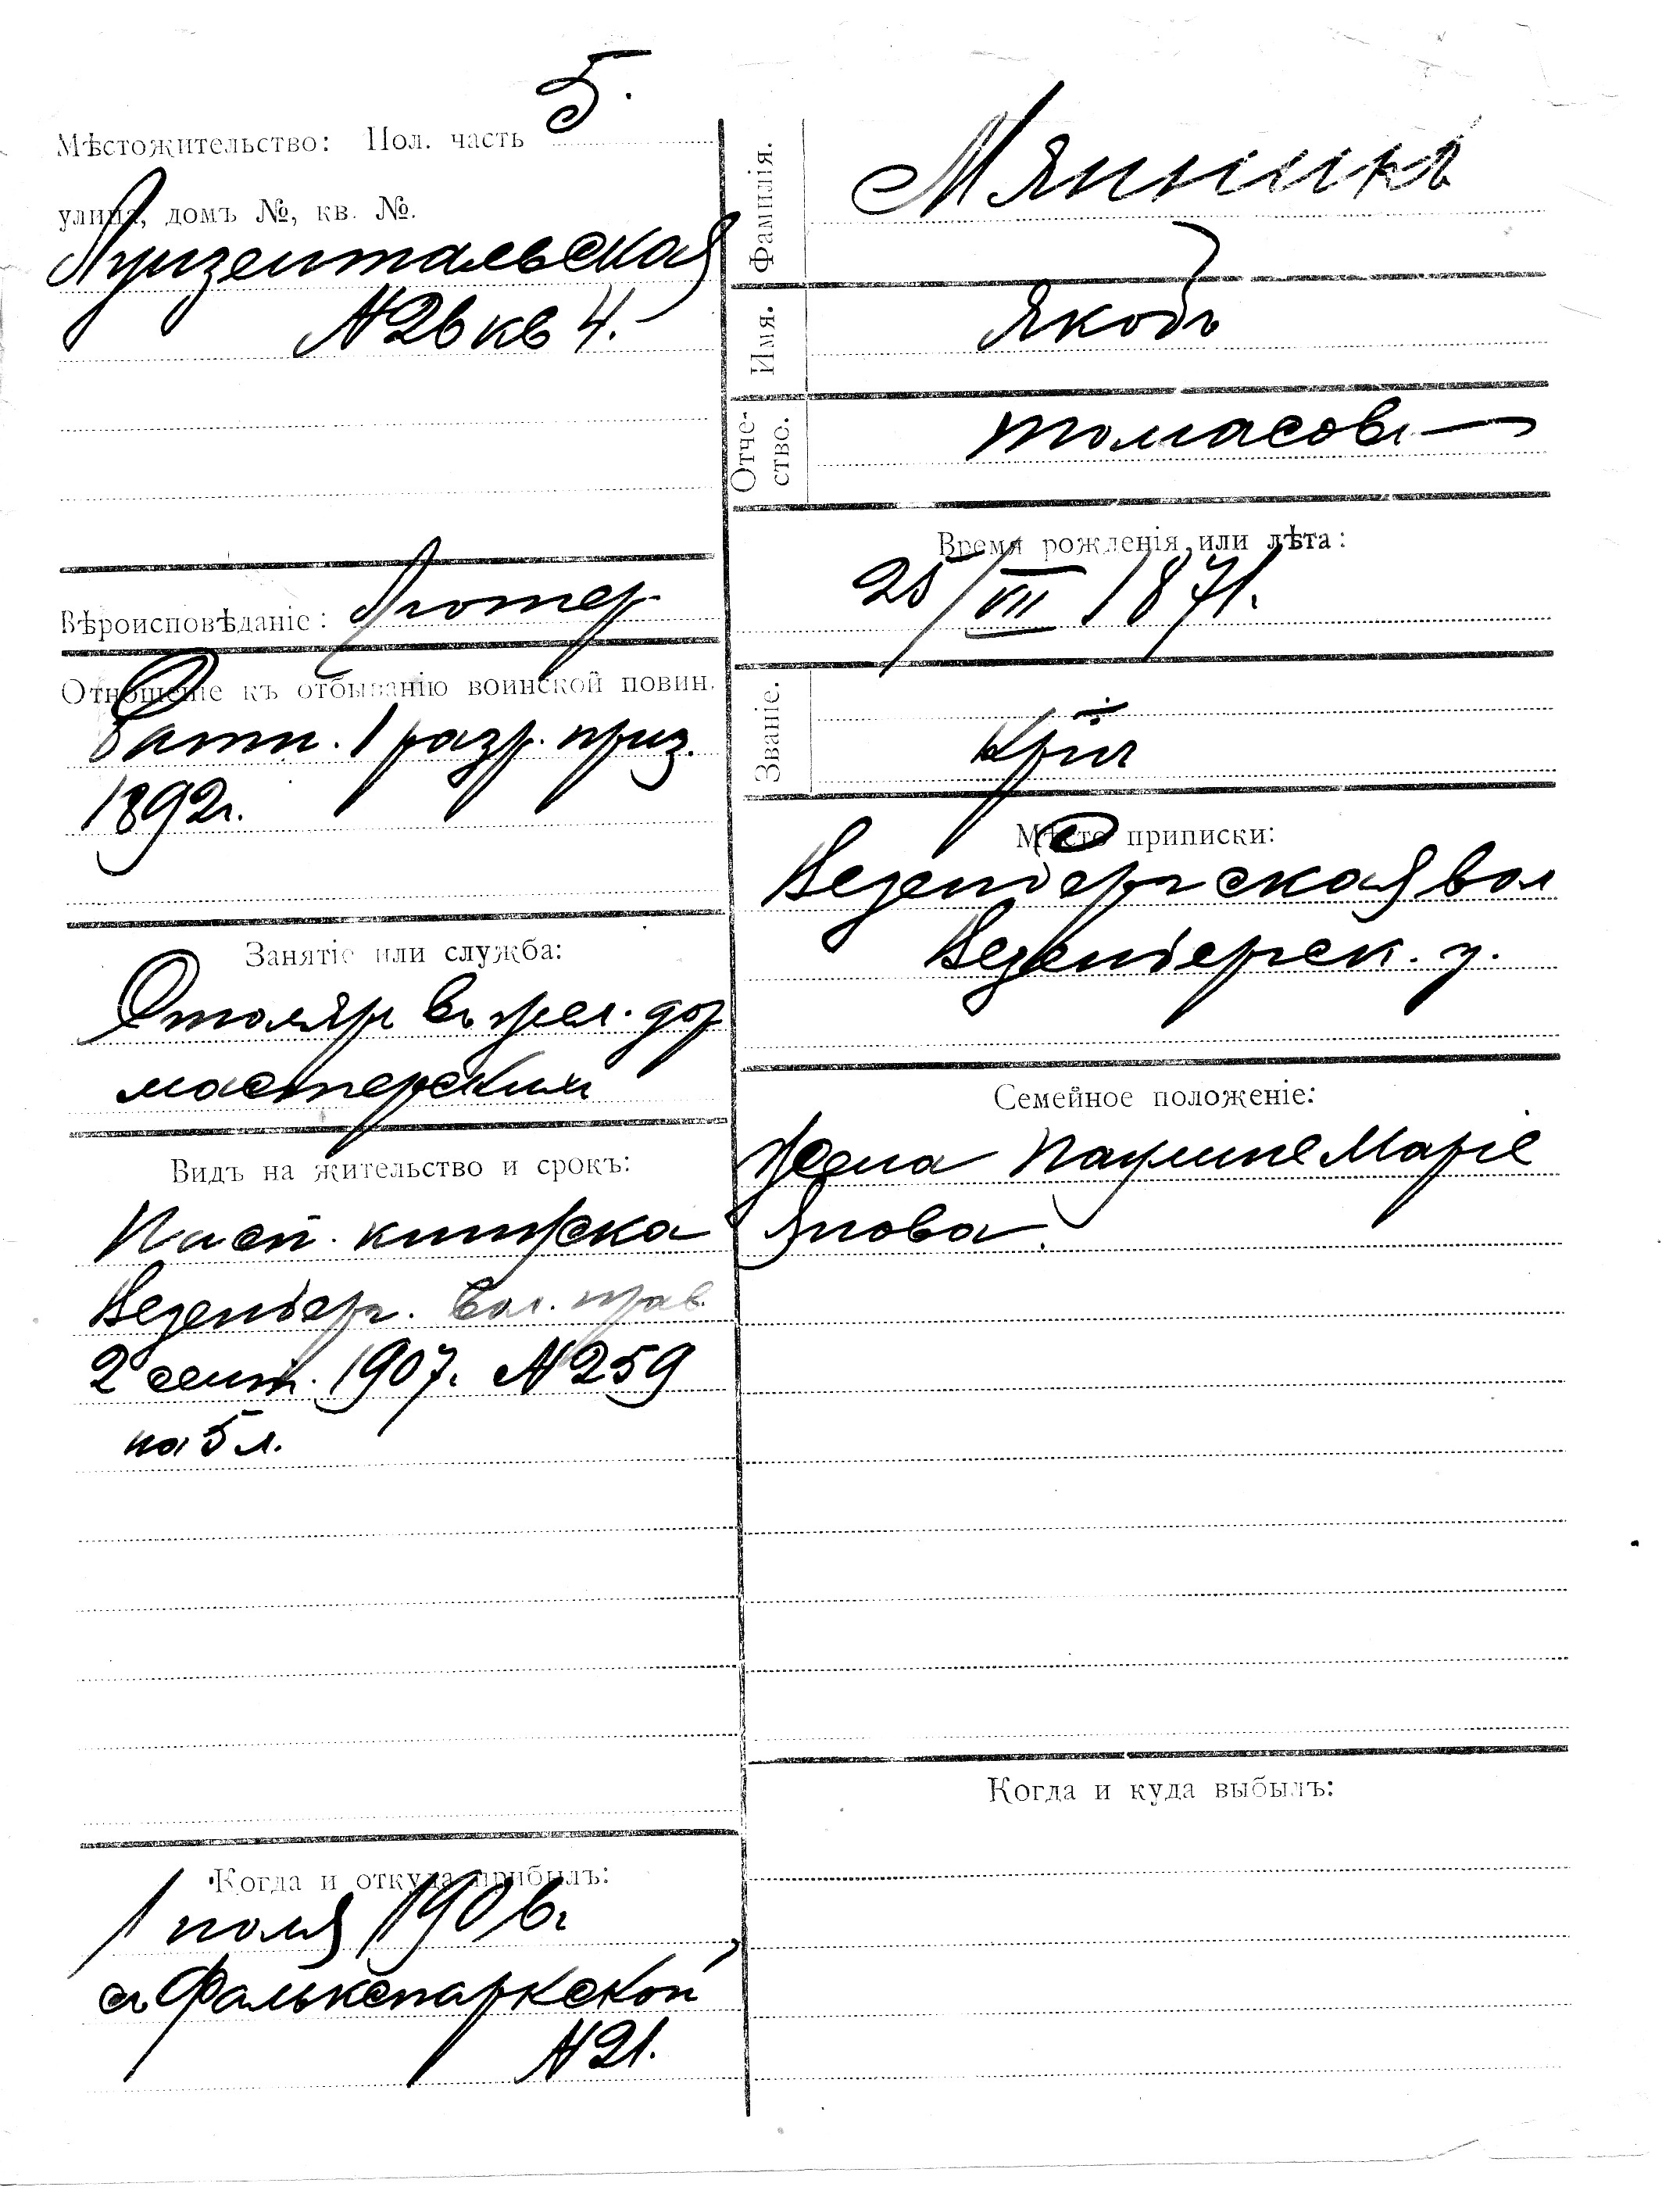 5.
Мѣстожительство: Пол. часть
улица, домъ №, кв. №.
Луизентальская
№ 26 кв 4.
Вѣроисповѣданіе: Лютер
Отношеніе къ отбыванію воинской повин.
Ратн. 1 разр. приз.
1892г.
Занятіе или служба:
Столяръ въ жел. дор
мастерскихъ
Видъ на жительство и срокъ:
Пасп. книжка
Везенберг. Вол. прав.
2 сент. 1907. № 259
на 5 л.
Когда и откуда прибылъ:
1906г
съ Фалькспаркской
№ 21.
Фамилія.
Мянникъ
Имя.
Якобъ
Отче-
ство.
Томасовъ
Время рожденія или лѣта:
25/VII 1871.
Званіе.
Кр-нъ
Мѣсто приписки:
Везенбергская вол
Везенбергск. у.
Семейное положеніе:
Жена Паулине Маріе
Янова.
Когда и куда выбылъ: